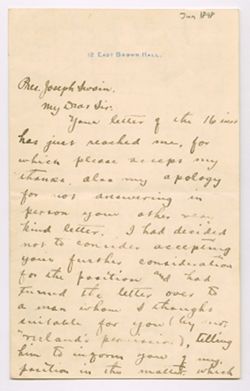 Jan 1898
12 EAST BROWN HALL.
Pres. Joseph Swain.
My Dear Sir:
Your letter of the 16 inst
has just reached me, for
which please accept my
thanks, also my apology
for not answering in
person your other very
kind letter. I had decided
not to consider accepting
your further consideration
for the position and had
turned the letter over to
a man whom I thought
suitable for you (by
permission), telling
him to inform you of my
position in the matter, which